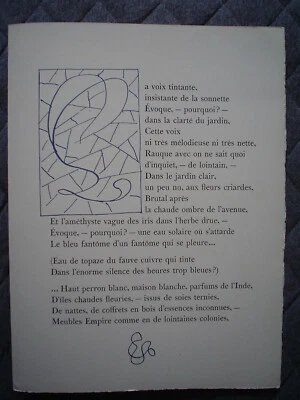 a voix tintante,
insistante de la sonnette
Évoque, — pourquoi? —
dans la clarté du jardin,
Cette voix
ni très mélodieuse ni très nette,
Rauque avec on ne sait quoi
d'inquiet, — de lointain. —
Dans le jardin clair,
un peu nu, aux fleurs criardes,
Brutal après
la chaude ombre de l'avenue,
Et l'améthyste vague des iris dans l'herbe drue, —
Évoque, — pourquoi? — une eau solaire où s'attarde
Le bleu fantôme d'un fantôme qui se pleure...
(Eau de topaze du fauve cuivre qui tinte
Dans l'énorme silence des heures trop bleues?)
... Haut perron blanc, maison blanche, parfums de l'Inde,
D'îles chaudes fleuries, — issus de soies ternies,
De nattes, de coffrets en bois d'essences inconnues, —
Meubles Empire comme en de lointaines colonies.